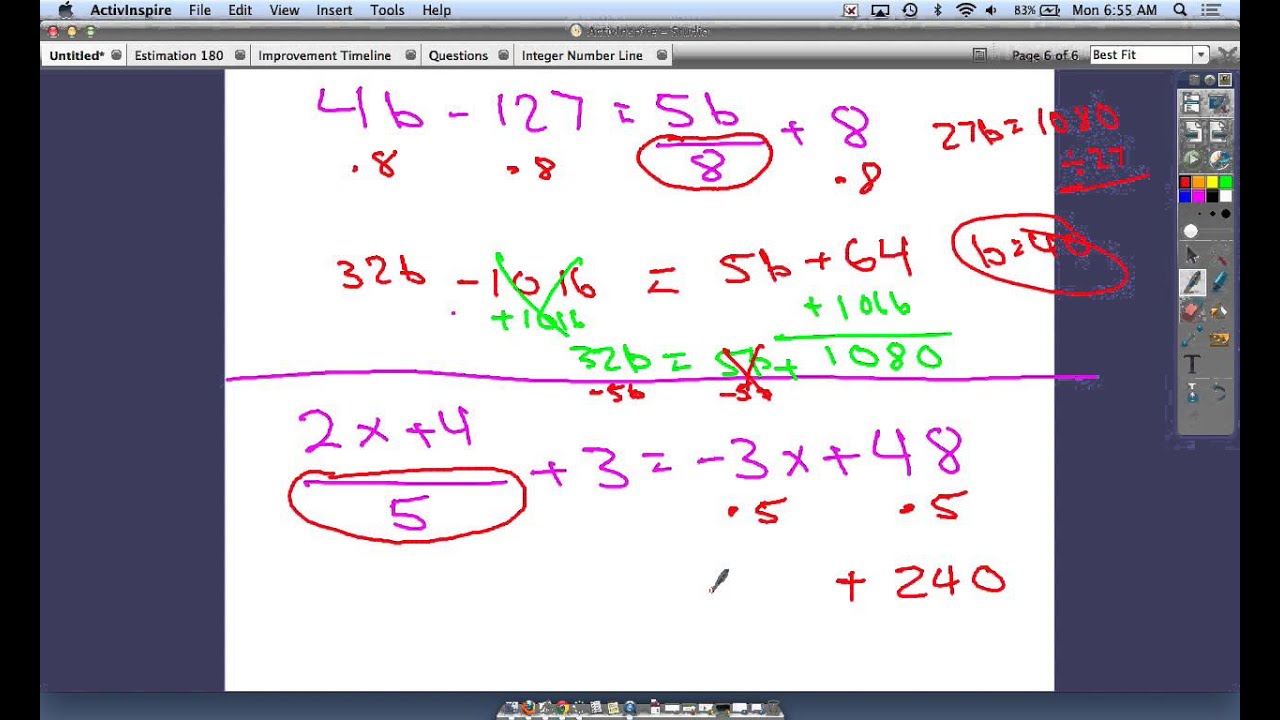 ActivInspire File Edit View Insert Tools Help 83% Mon 6:55 AM
ActivInspire - Studio
Untitled* Estimation 180 Improvement Timeline Questions Integer Number Line Page 6 of 6 Best Fit
4b - 127 = 5b/8 + 8
·8 ·8 ·8
27b = 1080
÷27
b = 40
32b - 1016 = 5b + 64
+1016 + 1016
32b = 5b + 1080
-5b -5b
2x + 4/5 + 3 = -3x + 48
·5 ·5
+ 240
T